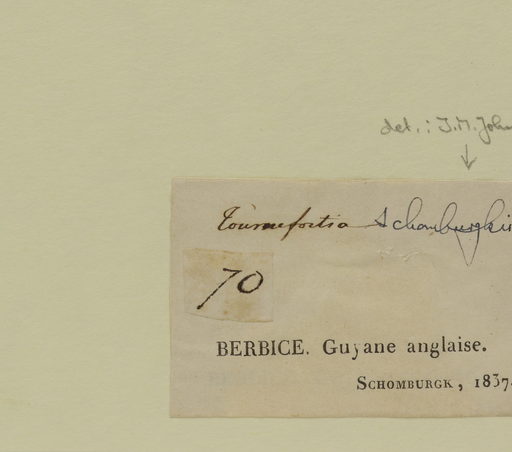 det.: I.M. John
Tournefortia Schomburgkii
70
BERBICE. Guyane anglaise.
SCHOMBURGK, 1837.